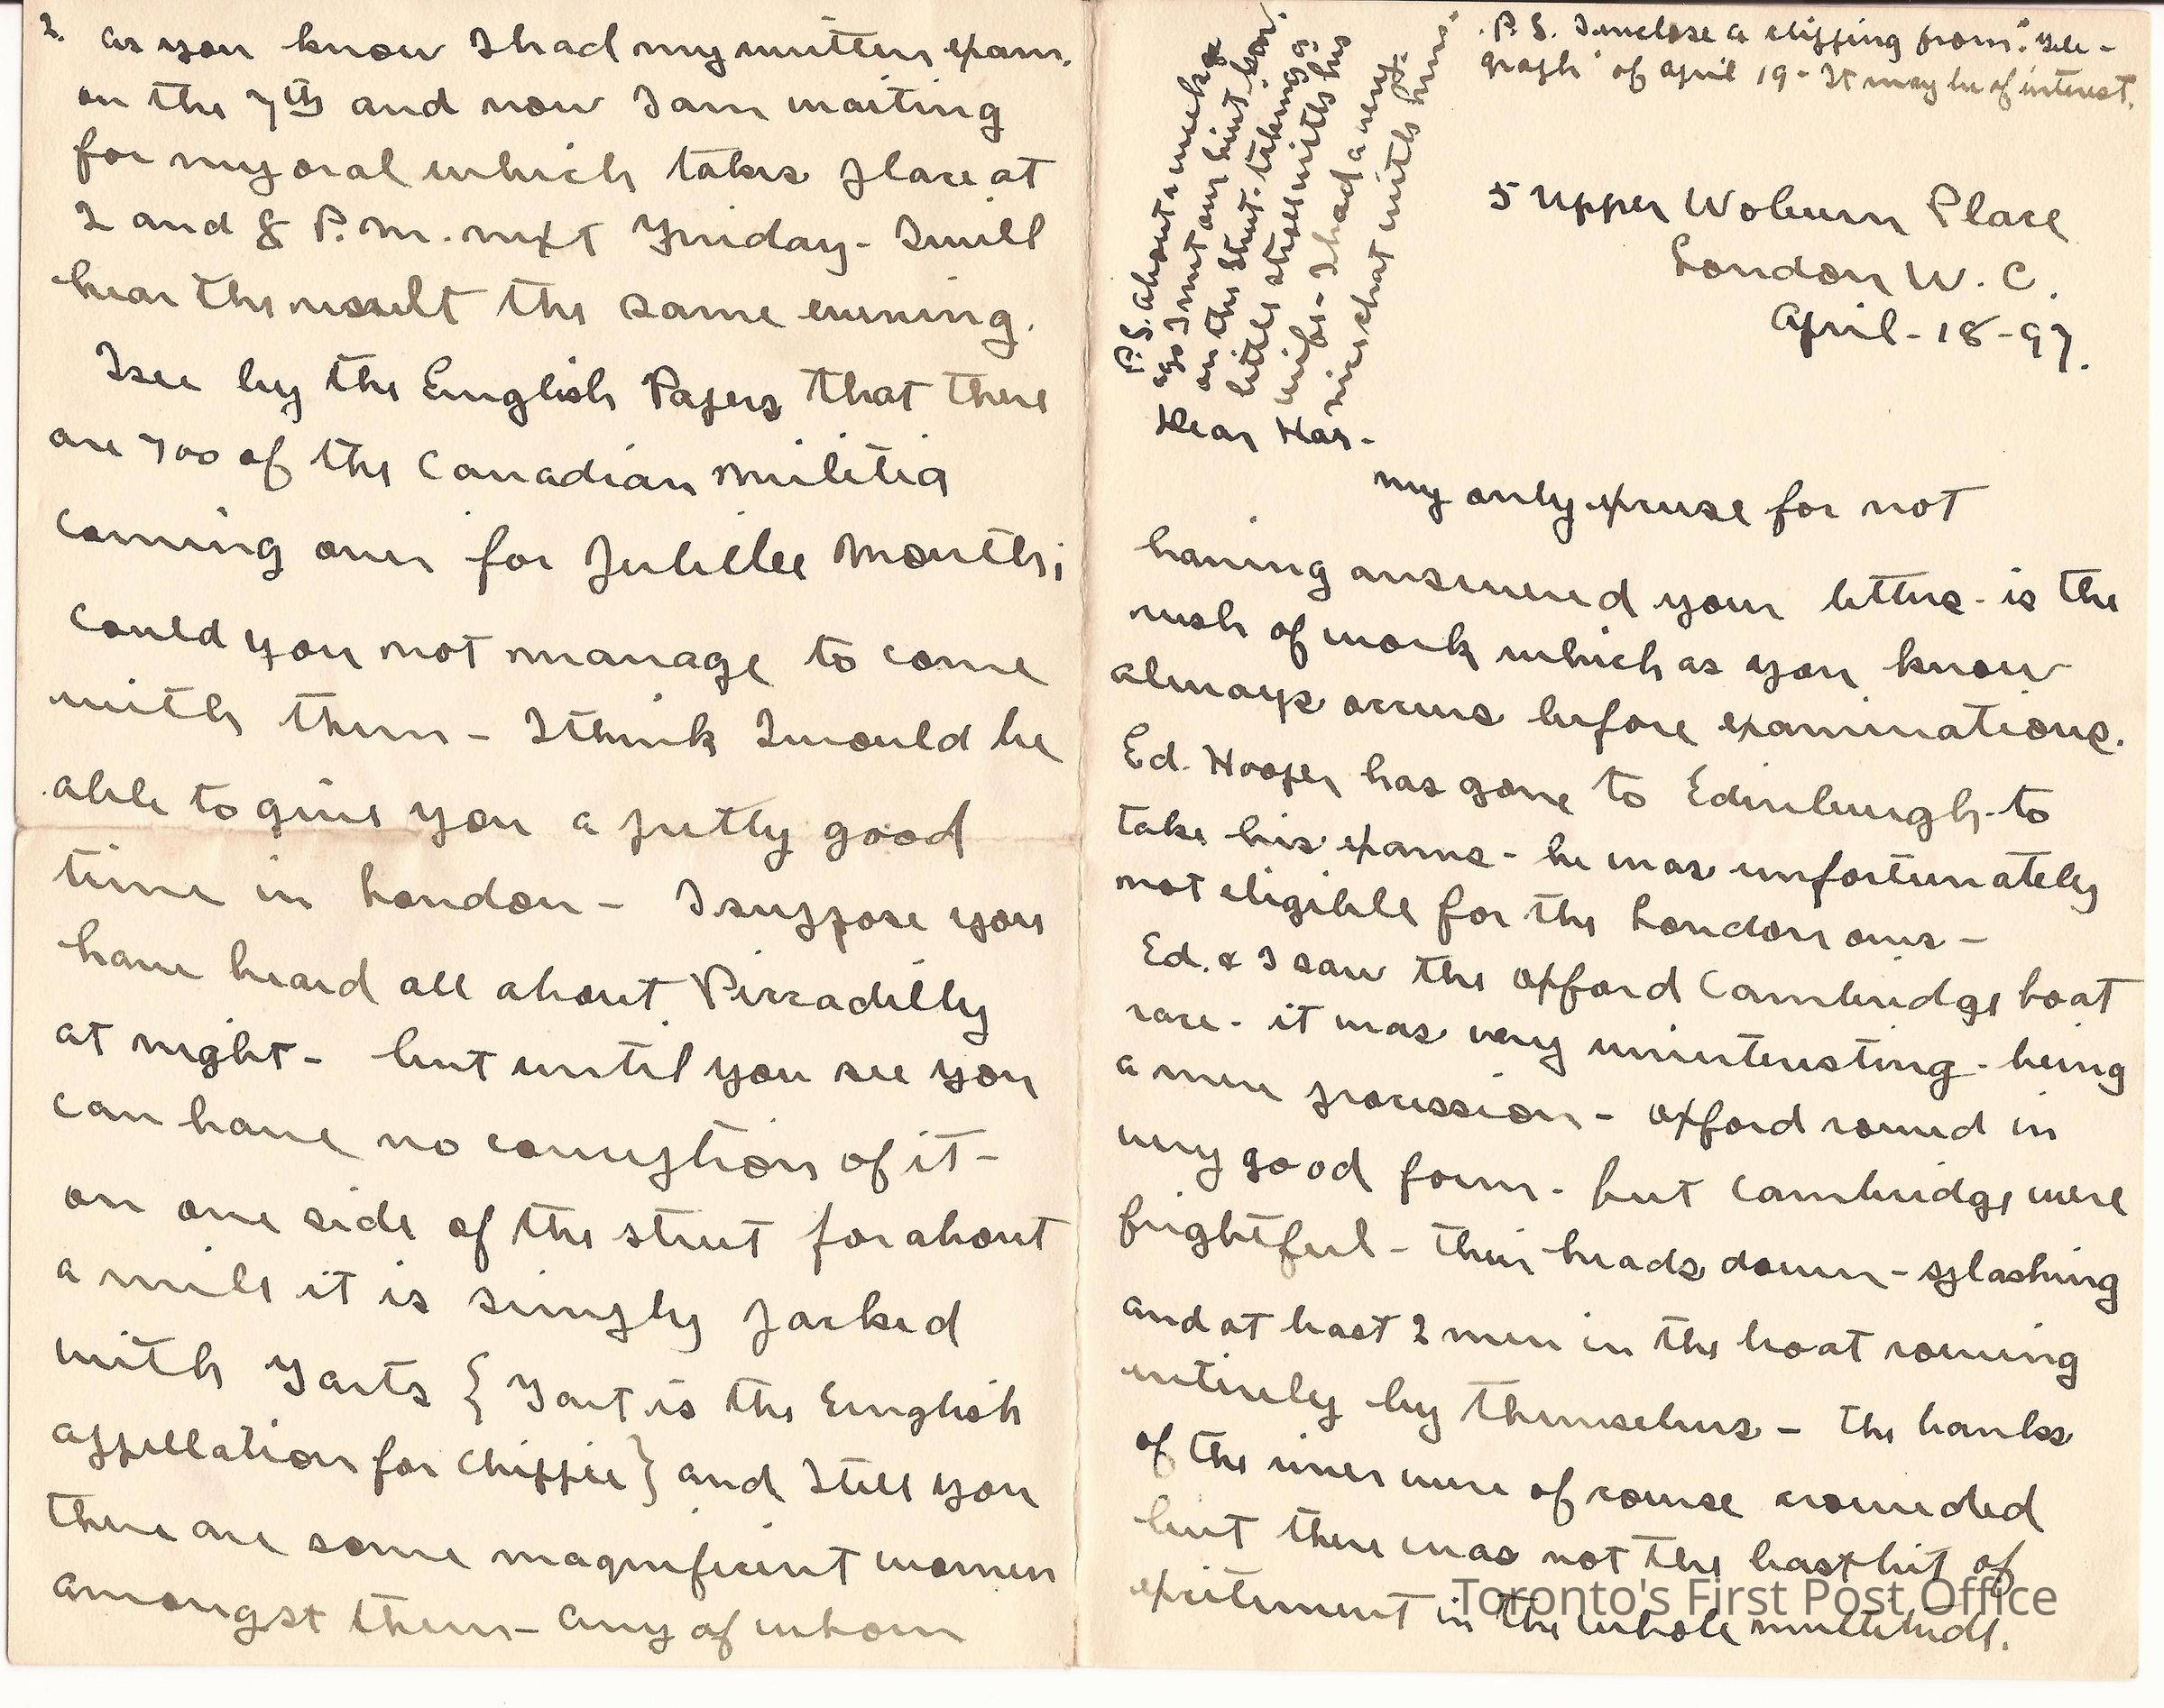 P.S. I inclose a clipping from "Tele-
graph" of April 19 - It may be of interest.
5 Upper Woburn Place
London W. C.
April - 18 - 97.
P.S. About a week
ago I met our
on the street - taking a
little stroll with his
wife - I had a very
nice chat with him.
Dear Har -
My only excuse for not
having answered your letters - is the
rush of work which as you know
always occurs before examinations.
Ed. Hooper has gone to Edinburgh - to
take his exams - he was unfortunately
not eligible for the London ones -
Ed. & I saw the Oxford Cambridge boat
race - it was very uninteresting - being
a mere procession - Oxford rowed in
very good form - but Cambridge were
frightful - their heads down - splashing
and at least 2 men in the boat rowing
entirely by themselves - the banks
of the river were of course crowded
but there was not the least bit of
excitement in the whole multitude.
2. As you know I had my written exam.
on the 7th and now I am waiting
for my oral which takes place at
2 and 8 P.M. next Friday - I will
hear the result the same evening.
I see by the English Papers that there
are 700 of the Canadian Militia
coming over for Jubillee Month;
could you not manage to come
with them - I think I would be
able to give you a pretty good
time in London - I suppose you
have heard all about Piccadilly
at night - but until you see you
can have no conception of it -
on one side of the street for about
a mile it is simply packed
with Tarts { Tart is the English
appellation for Chippie } and I tell you
there are some magnificent women
amongst them - any of whom
Toronto's First Post Office